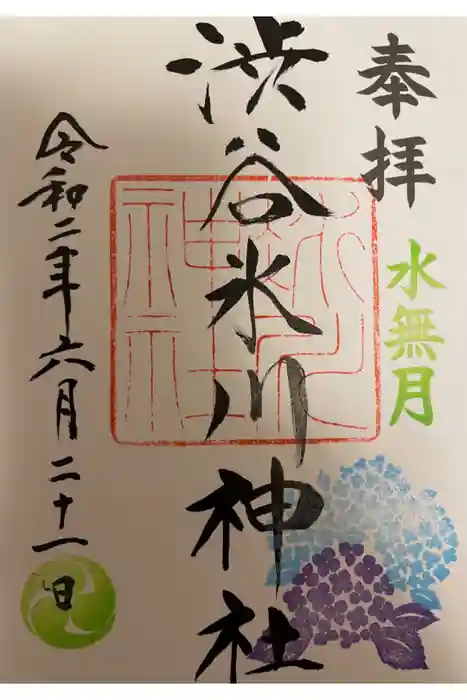 奉拝
水無月
渋谷氷川神社
氷川神社
令和二年六月二十一日